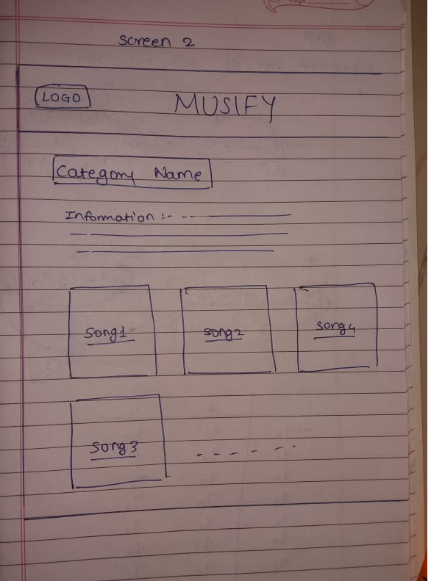 Screen 2
LOGO MUSIFY
Category Name
Information :-
Song1 Song2 Song4
Song3